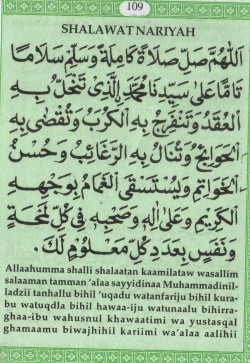 109
SHALAWAT NARIYAH
اَللّٰهُمَّ صَلِّ صَلَاةً كَامِلَةً وَسَلِّمْ سَلَامًا
تَامًّا عَلٰى سَيِّدِنَا مُحَمَّدِ ࣙالَّذِيْ تَنْحَلُّ بِهِ
الْعُقَدُ وَتَنْفَرِجُ بِهِ الْكُرَبُ وَتُقْضٰى بِهِ
الْحَوَائِجُ وَتُنَالُ بِهِ الرَّغَائِبُ وَحُسْنُ
الْخَوَاتِمِ وَيُسْتَسْقَى الْغَمَامُ بِوَجْهِهِ
الْكَرِيْمِ وَعَلٰى اٰلِهِ وَصَحْبِهِ فِيْ كُلِّ لَمْحَةٍ
وَنَفَسٍ بِعَدَدِ كُلِّ مَعْلُوْمٍ لَكَ.
Allaahumma shalli shalaatan kaamilataw wasallim
salaaman tamman 'alaa sayyidinaa Muhammadinil-
ladzii tanhallu bihil 'uqadu watanfariju bihil kura-
bu watuqdla bihil hawaa-iju watunaalu bihirra-
ghaa-ibu wahusnul khawaatimi wa yustasqal
ghamaamu biwajhihil kariimi wa'alaa aalihii